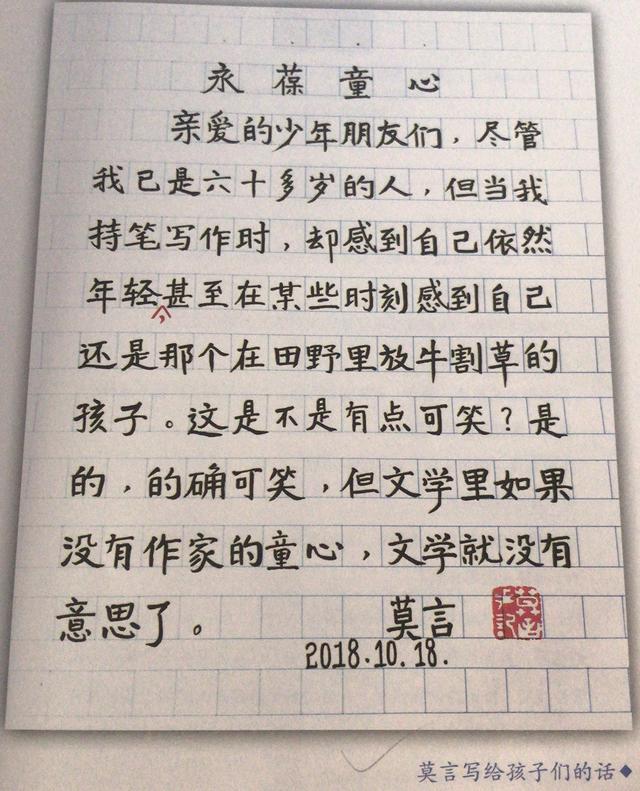 永葆童心
亲爱的少年朋友们，尽管
我已是六十多岁的人，但当我
持笔写作时，却感到自己依然
年轻，甚至在某些时刻感到自己
还是那个在田野里放牛割草的
孩子。这是不是有点可笑？是
的，的确可笑，但文学里如果
没有作家的童心，文学就没有
意思了。 莫言
2018.10.18.
莫言写给孩子们的话